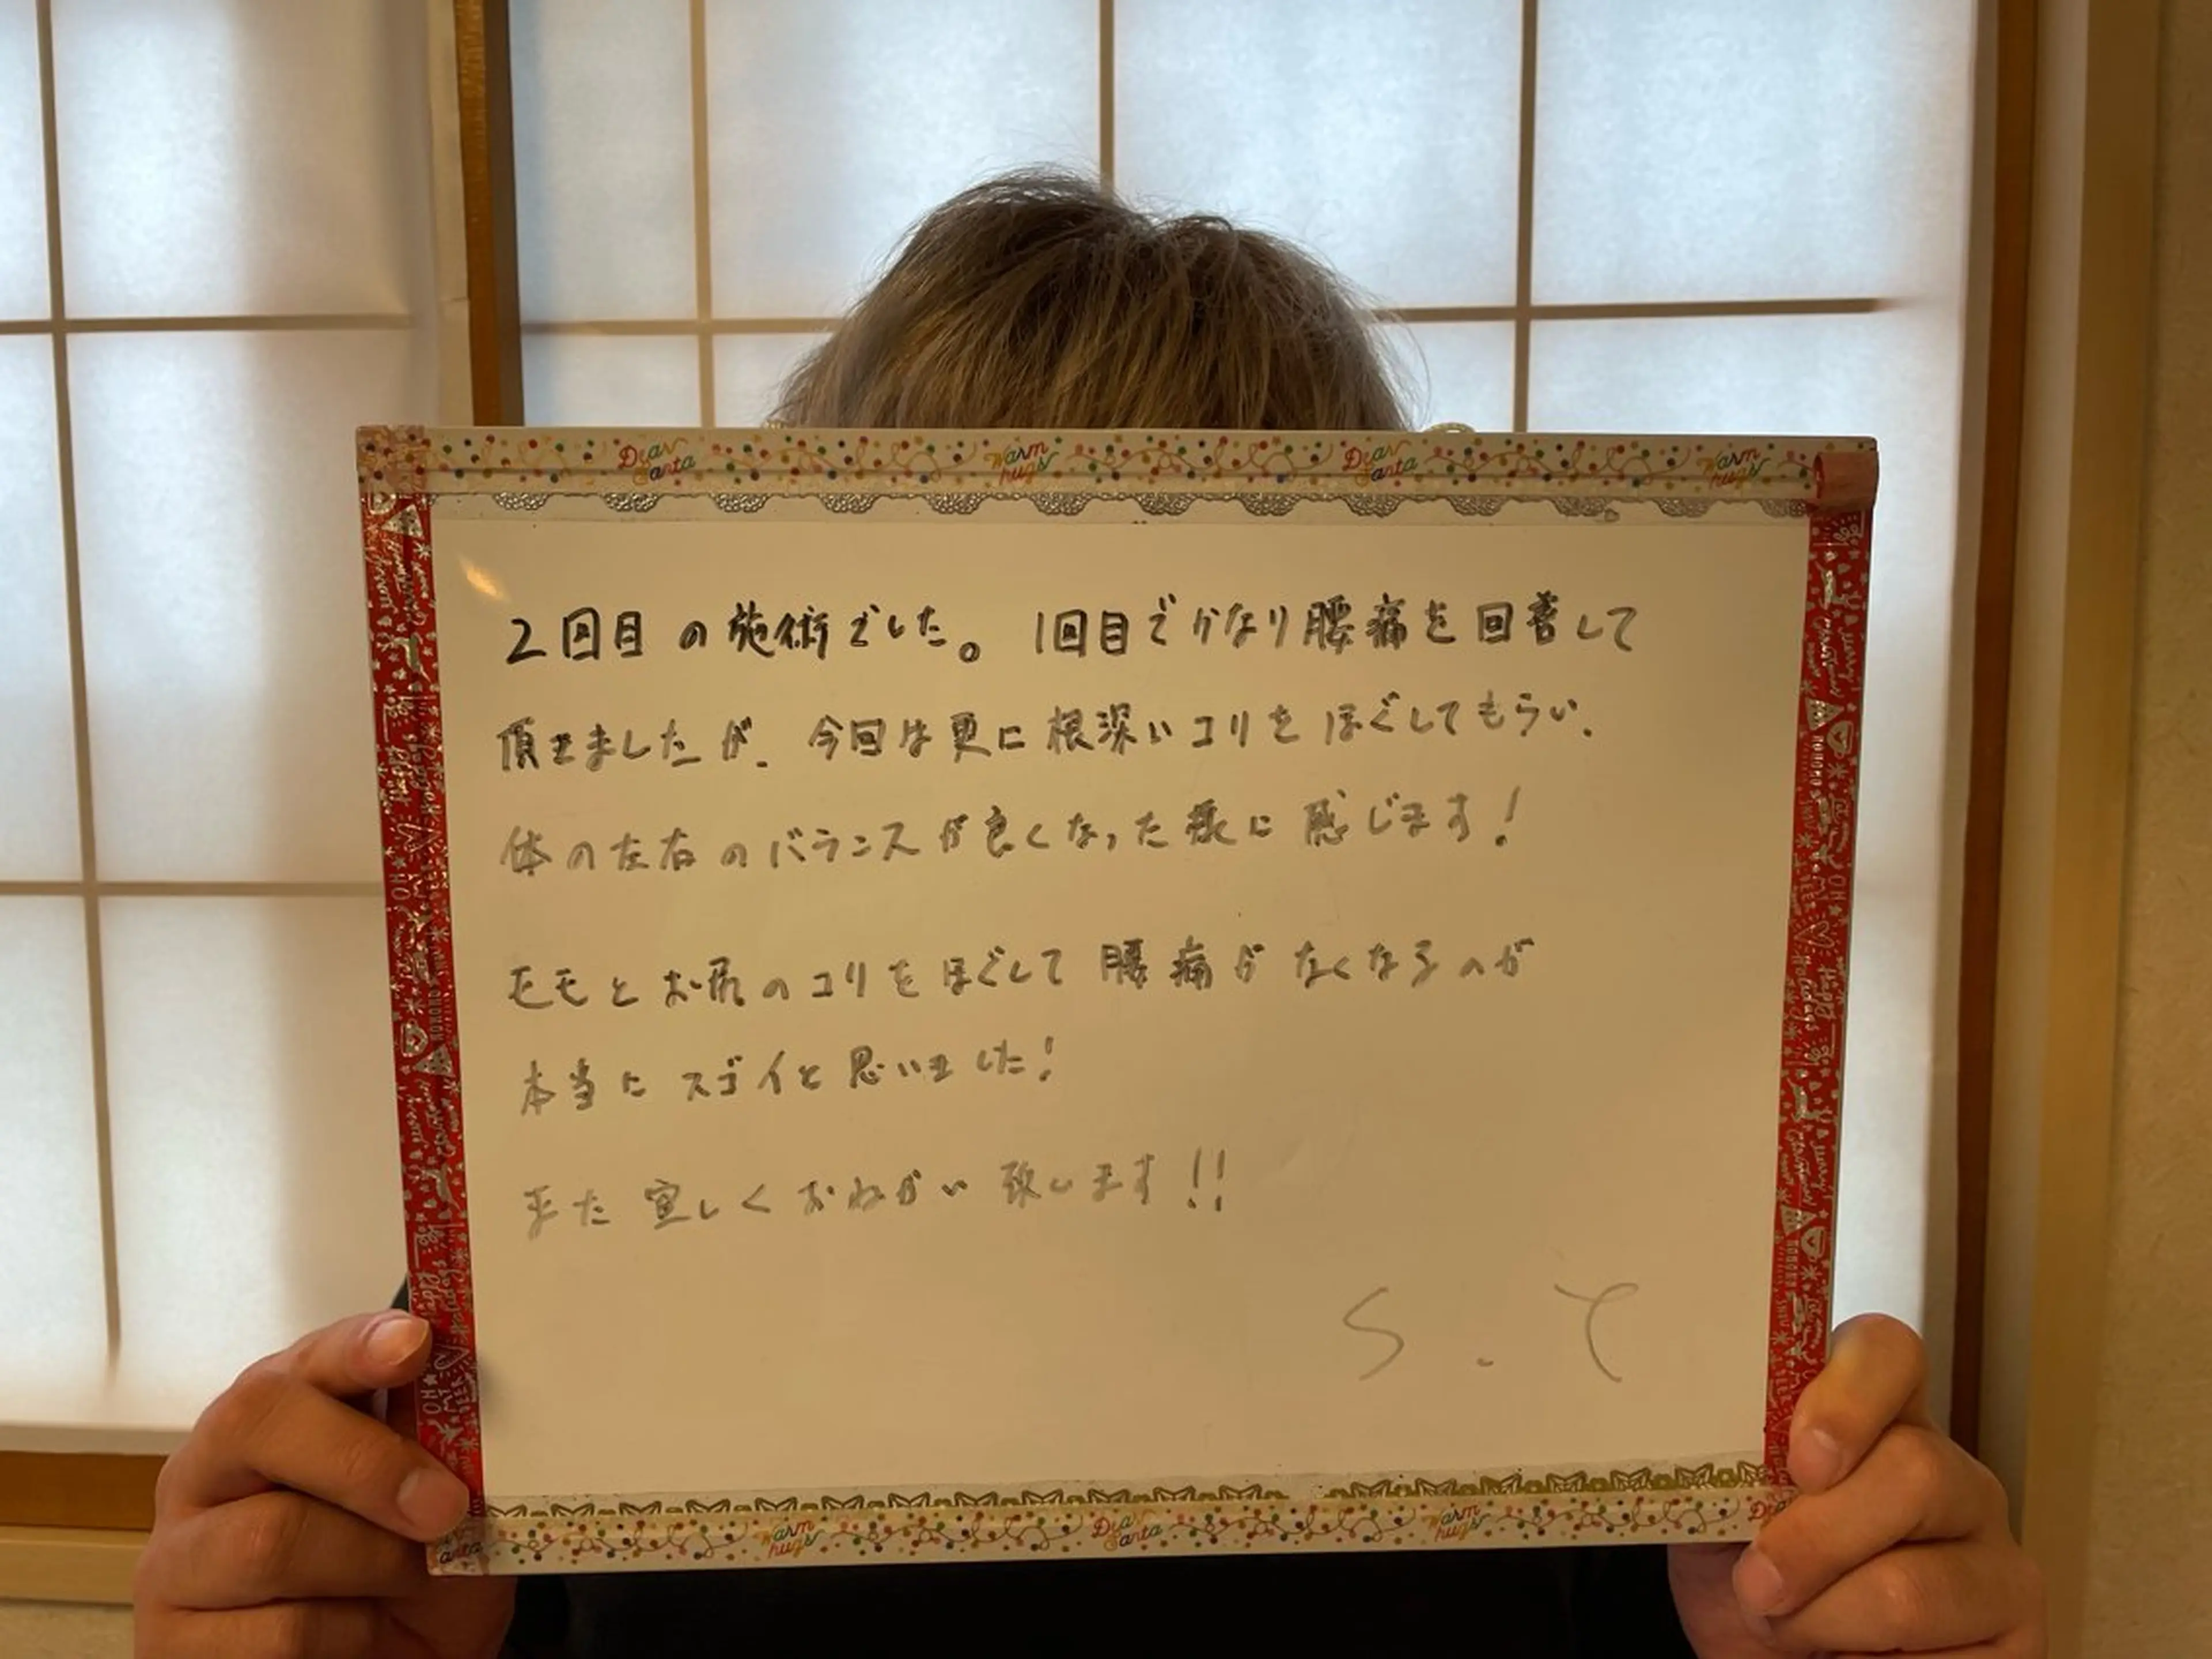 Dear Santa Warm hugs Dear Santa Warm hugs
2回目の施術でした。1回目でかなり腰痛を回善して
頂きましたが、今回は更に根深いコリをほぐしてもらい、
体の左右のバランスが良くなった様に感じます!
モモとお尻のコリをほぐして腰痛がなくなるのが
本当にスゴイと思いました!
また宜しくおねがい致します!!
S.Y
Warm hugs Dear Santa Warm hugs